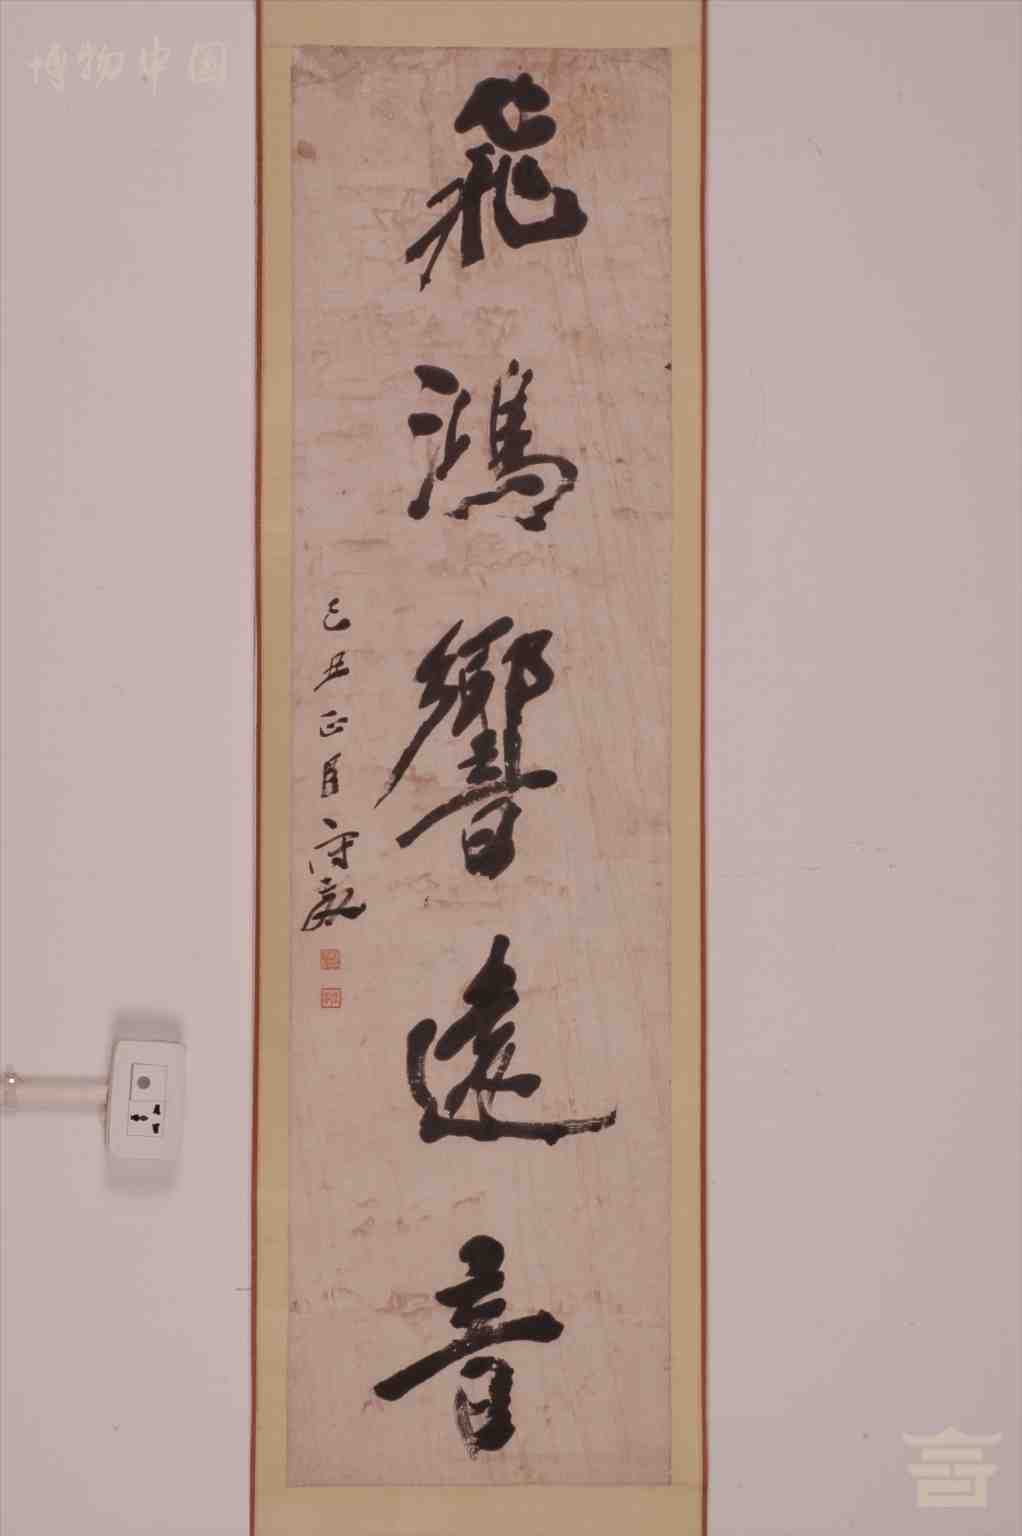 博物中国
飛鴻響遠音
己丑正月 守敬